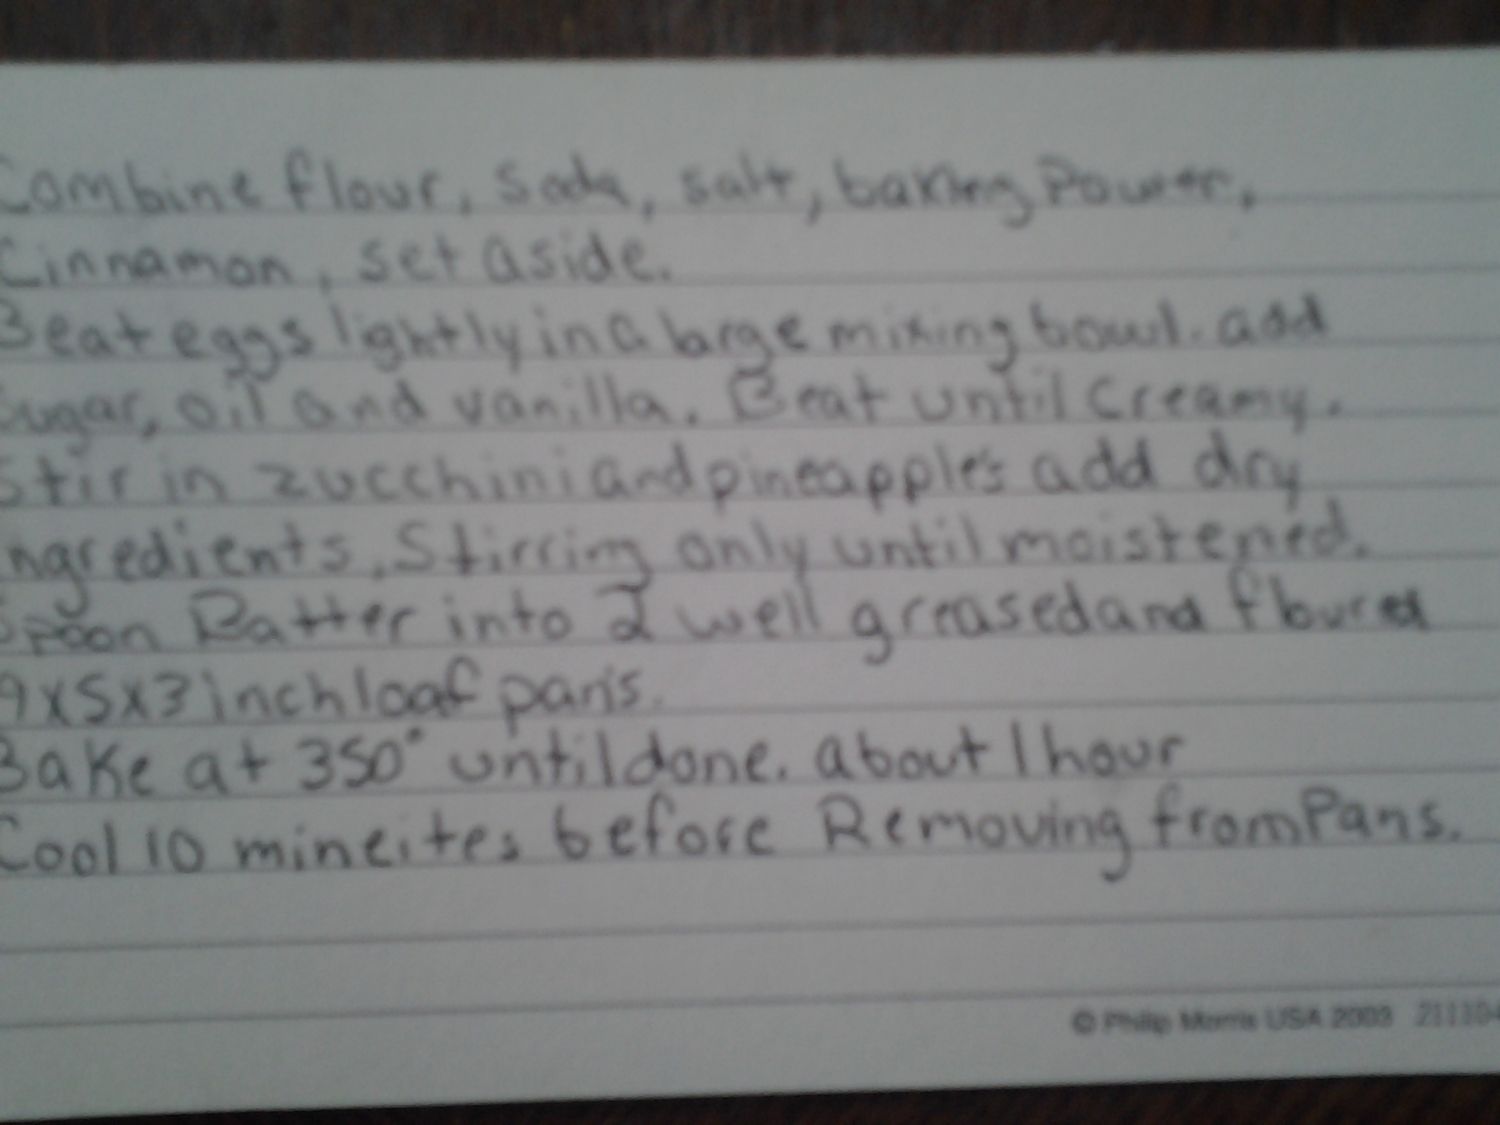 Combine flour, Soda, salt, baking Power,
Cinnamon, set aside.
Beat eggs lightly in a large mixing bowl. add
Sugar, oil and vanilla. Beat until creamy.
Stir in zucchini and pineapple's add dry
ingredients, Stirring only until moistened.
Spoon Batter into 2 well greased and floured
9x5x3 inch loaf pan's.
Bake at 350° until done. about 1 hour
Cool 10 mineites before Removing from Pans.
© Philip Morris USA 2003 211104